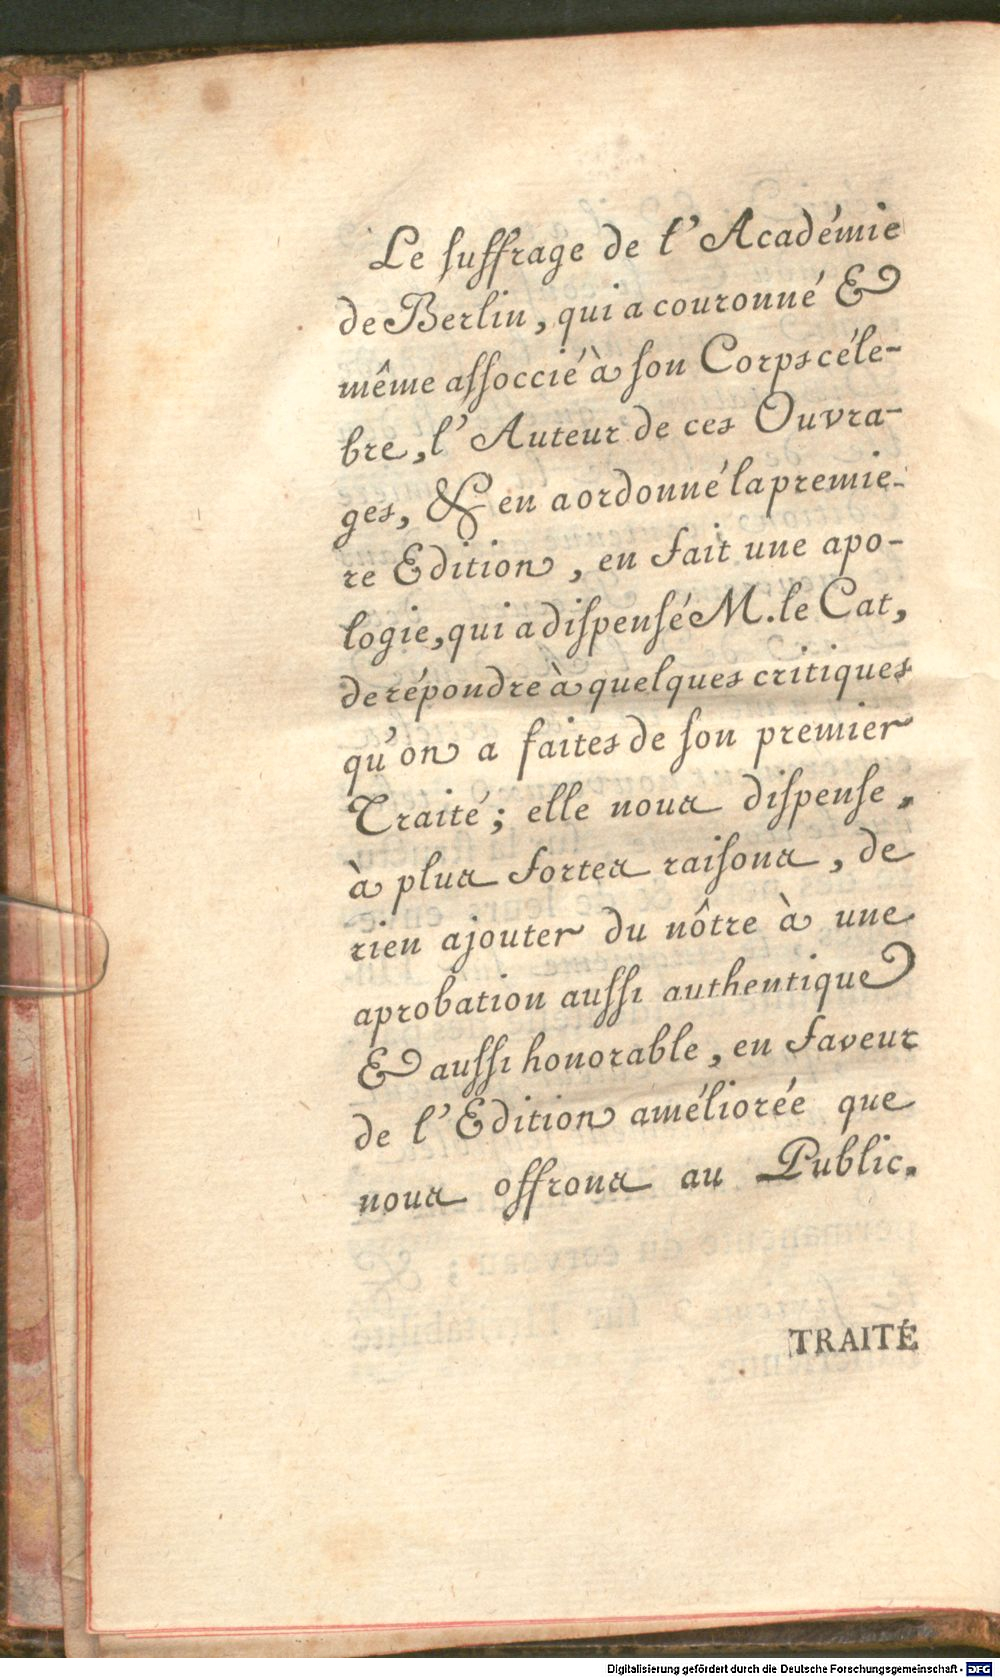 Le suffrage de l'Académie
de Berlin, qui a couronné &
même assoccié à son Corps céle-
bre, l'Auteur de ces Ouvra-
ges, & en a ordonné la premie-
re Edition, en fait une apo-
logie, qui a dispensé M. le Cat,
de répondre à quelques critiques
qu'on a faites de son premier
Traité; elle nous dispense,
à plus fortes raisons, de
rien ajouter du nôtre à une
aprobation aussi authentique
& aussi honorable, en faveur
de l'Edition améliorée que
nous offrons au Public.
TRAITÉ
Digitalisierung gefördert durch die Deutsche Forschungsgemeinschaft - DFG